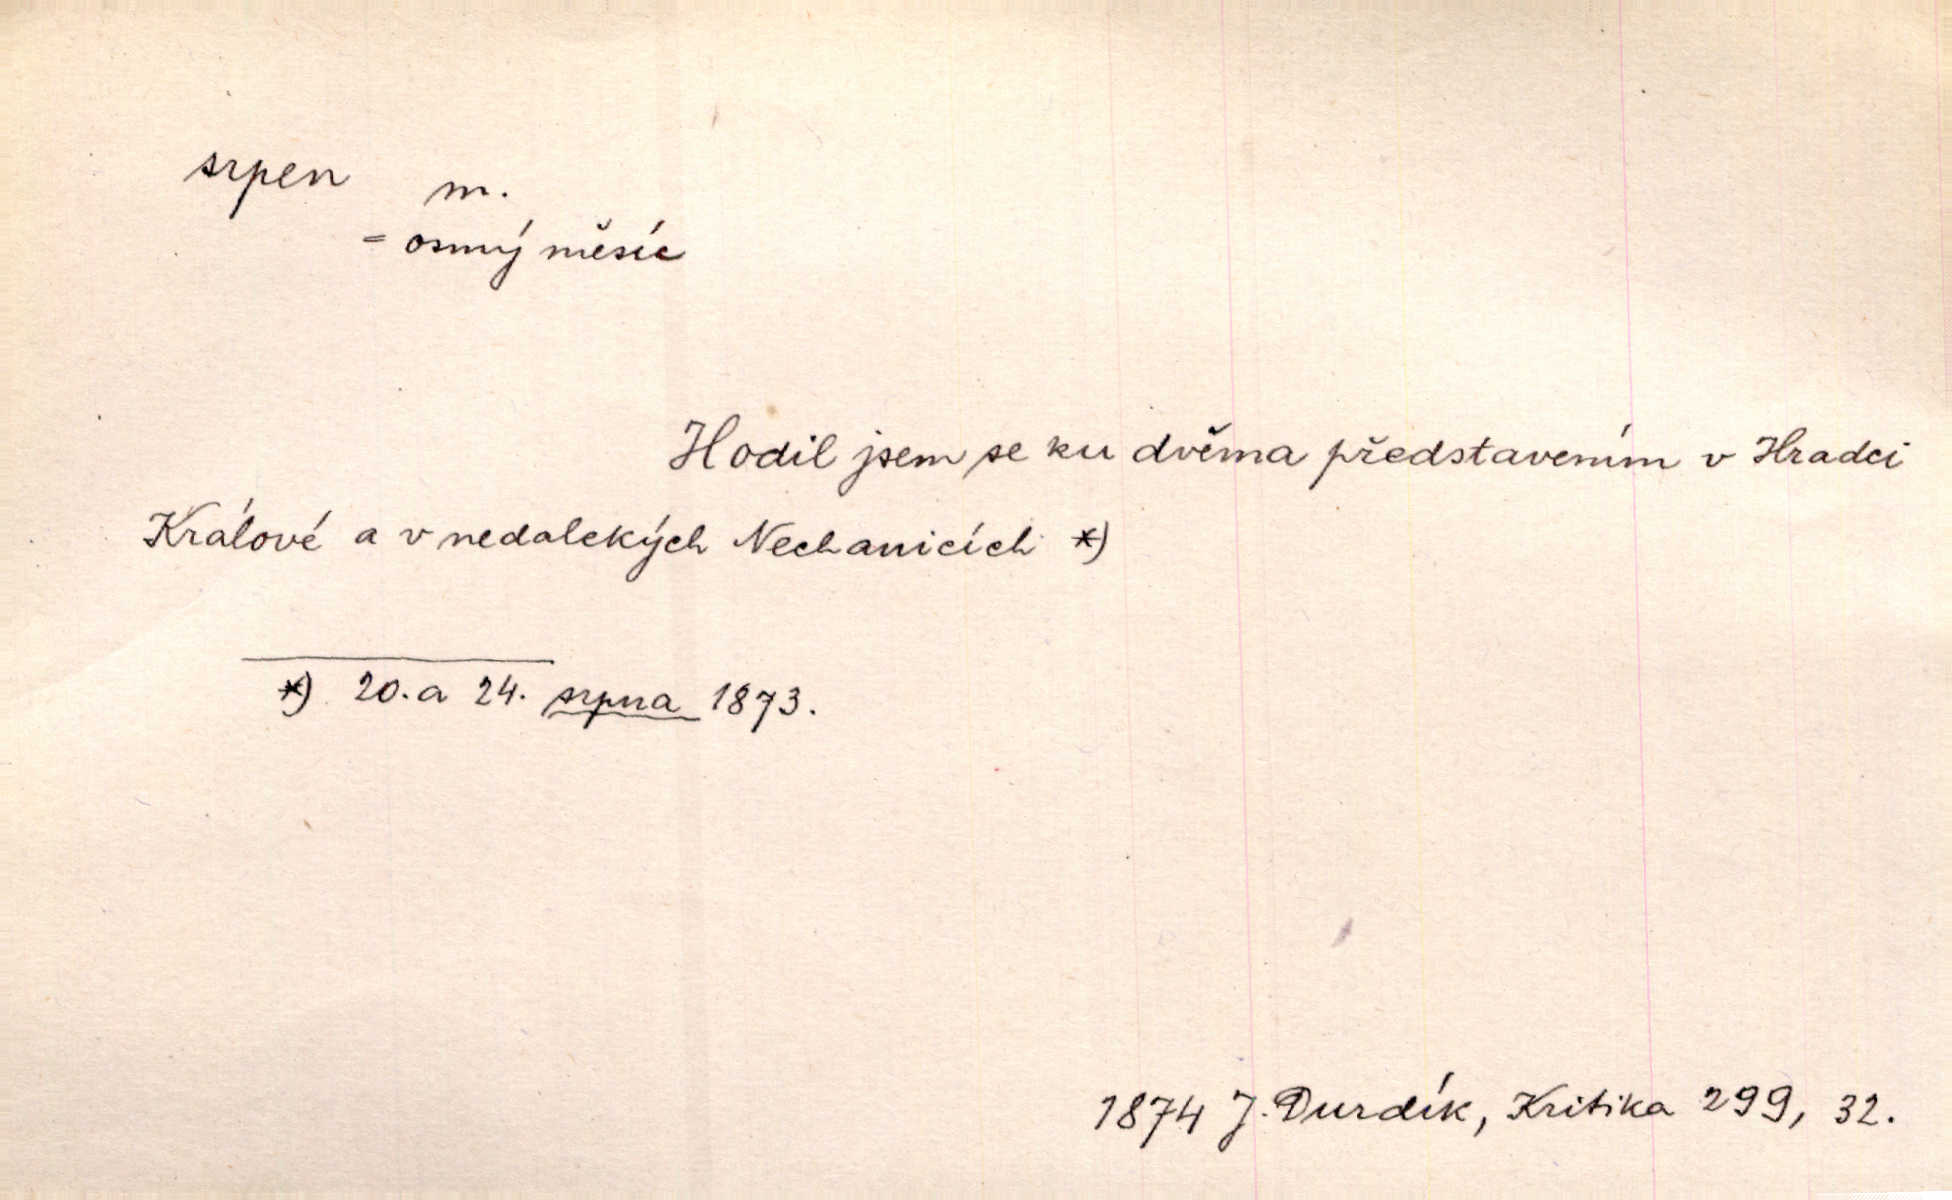 srpen m.
= osmý měsíc
Hodil jsem se ku dvěma představením v Hradci
Králové a v nedalekých Nechanicích *)
*) 20. a 24. srpna 1873.
1874 J. Durdík, Kritika 299, 32.